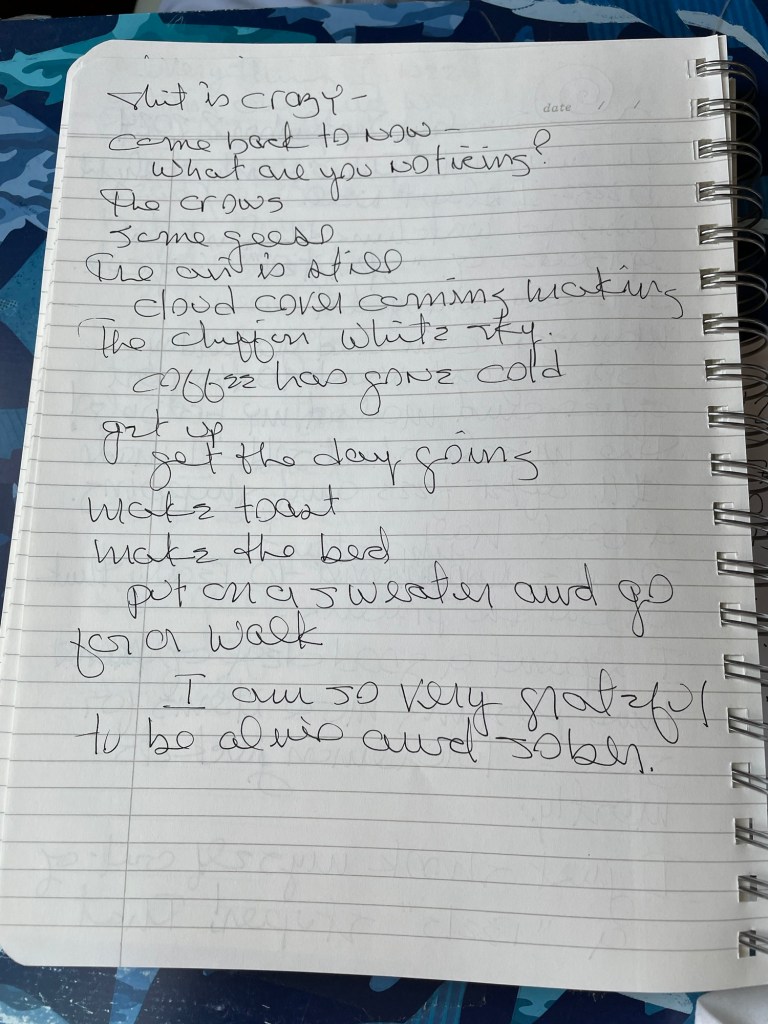 this is crazy -
date / /
come back to NOW -
What are you noticing?
The crows
some geese
The air is still
cloud cover coming making
The chiffon white sky.
coffee has gone cold
get up
get the day going
make toast
make the bed
put on a sweater and go
for a walk
I am so very grateful
to be alive and sober.